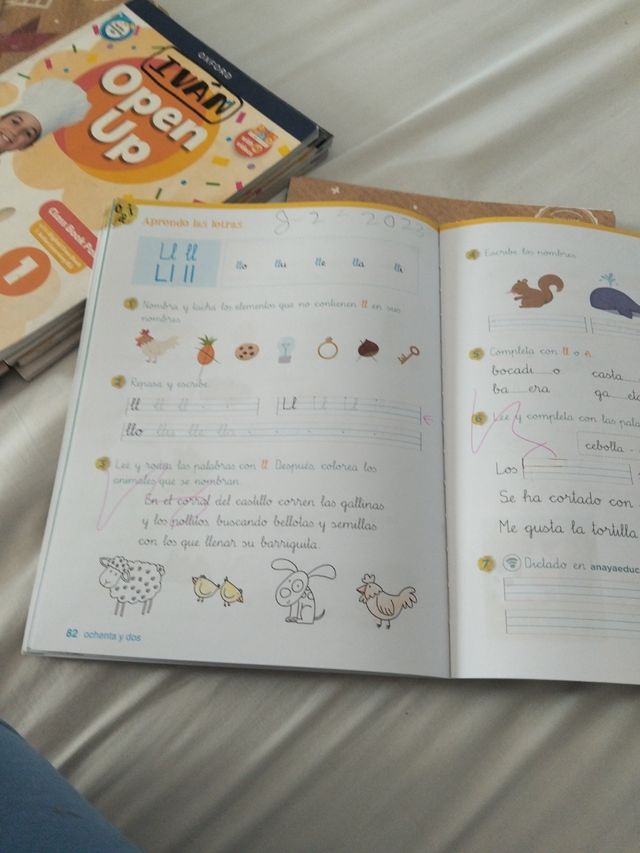 OXFORD
IVÁN
Open
Up
Class Book Pa
1
Aprendo las letras
8-2-2023
Ll ll
Ll ll
llo llu lle lla lli
1 Nombra y tacha los elementos que no contienen ll en sus
nombres.
2 Repasa y escribe.
ll ll ll
Ll Ll Ll Ll
llo lla lle llo
3 Lee y rodea las palabras con ll. Después, colorea los
animales que se nombran.
En el corral del castillo corren las gallinas
y los pollitos buscando bellotas y semillas
con los que llenar su barriguita.
82 ochenta y dos
4 Escribe los nombres.
5 Completa con ll o ñ.
bocadi o casta
ba era ga
6 Lee y completa con las pala
cebolla -
Los
Se ha cortado con
Me gusta la tortilla
7 Dictado en anayaeduc